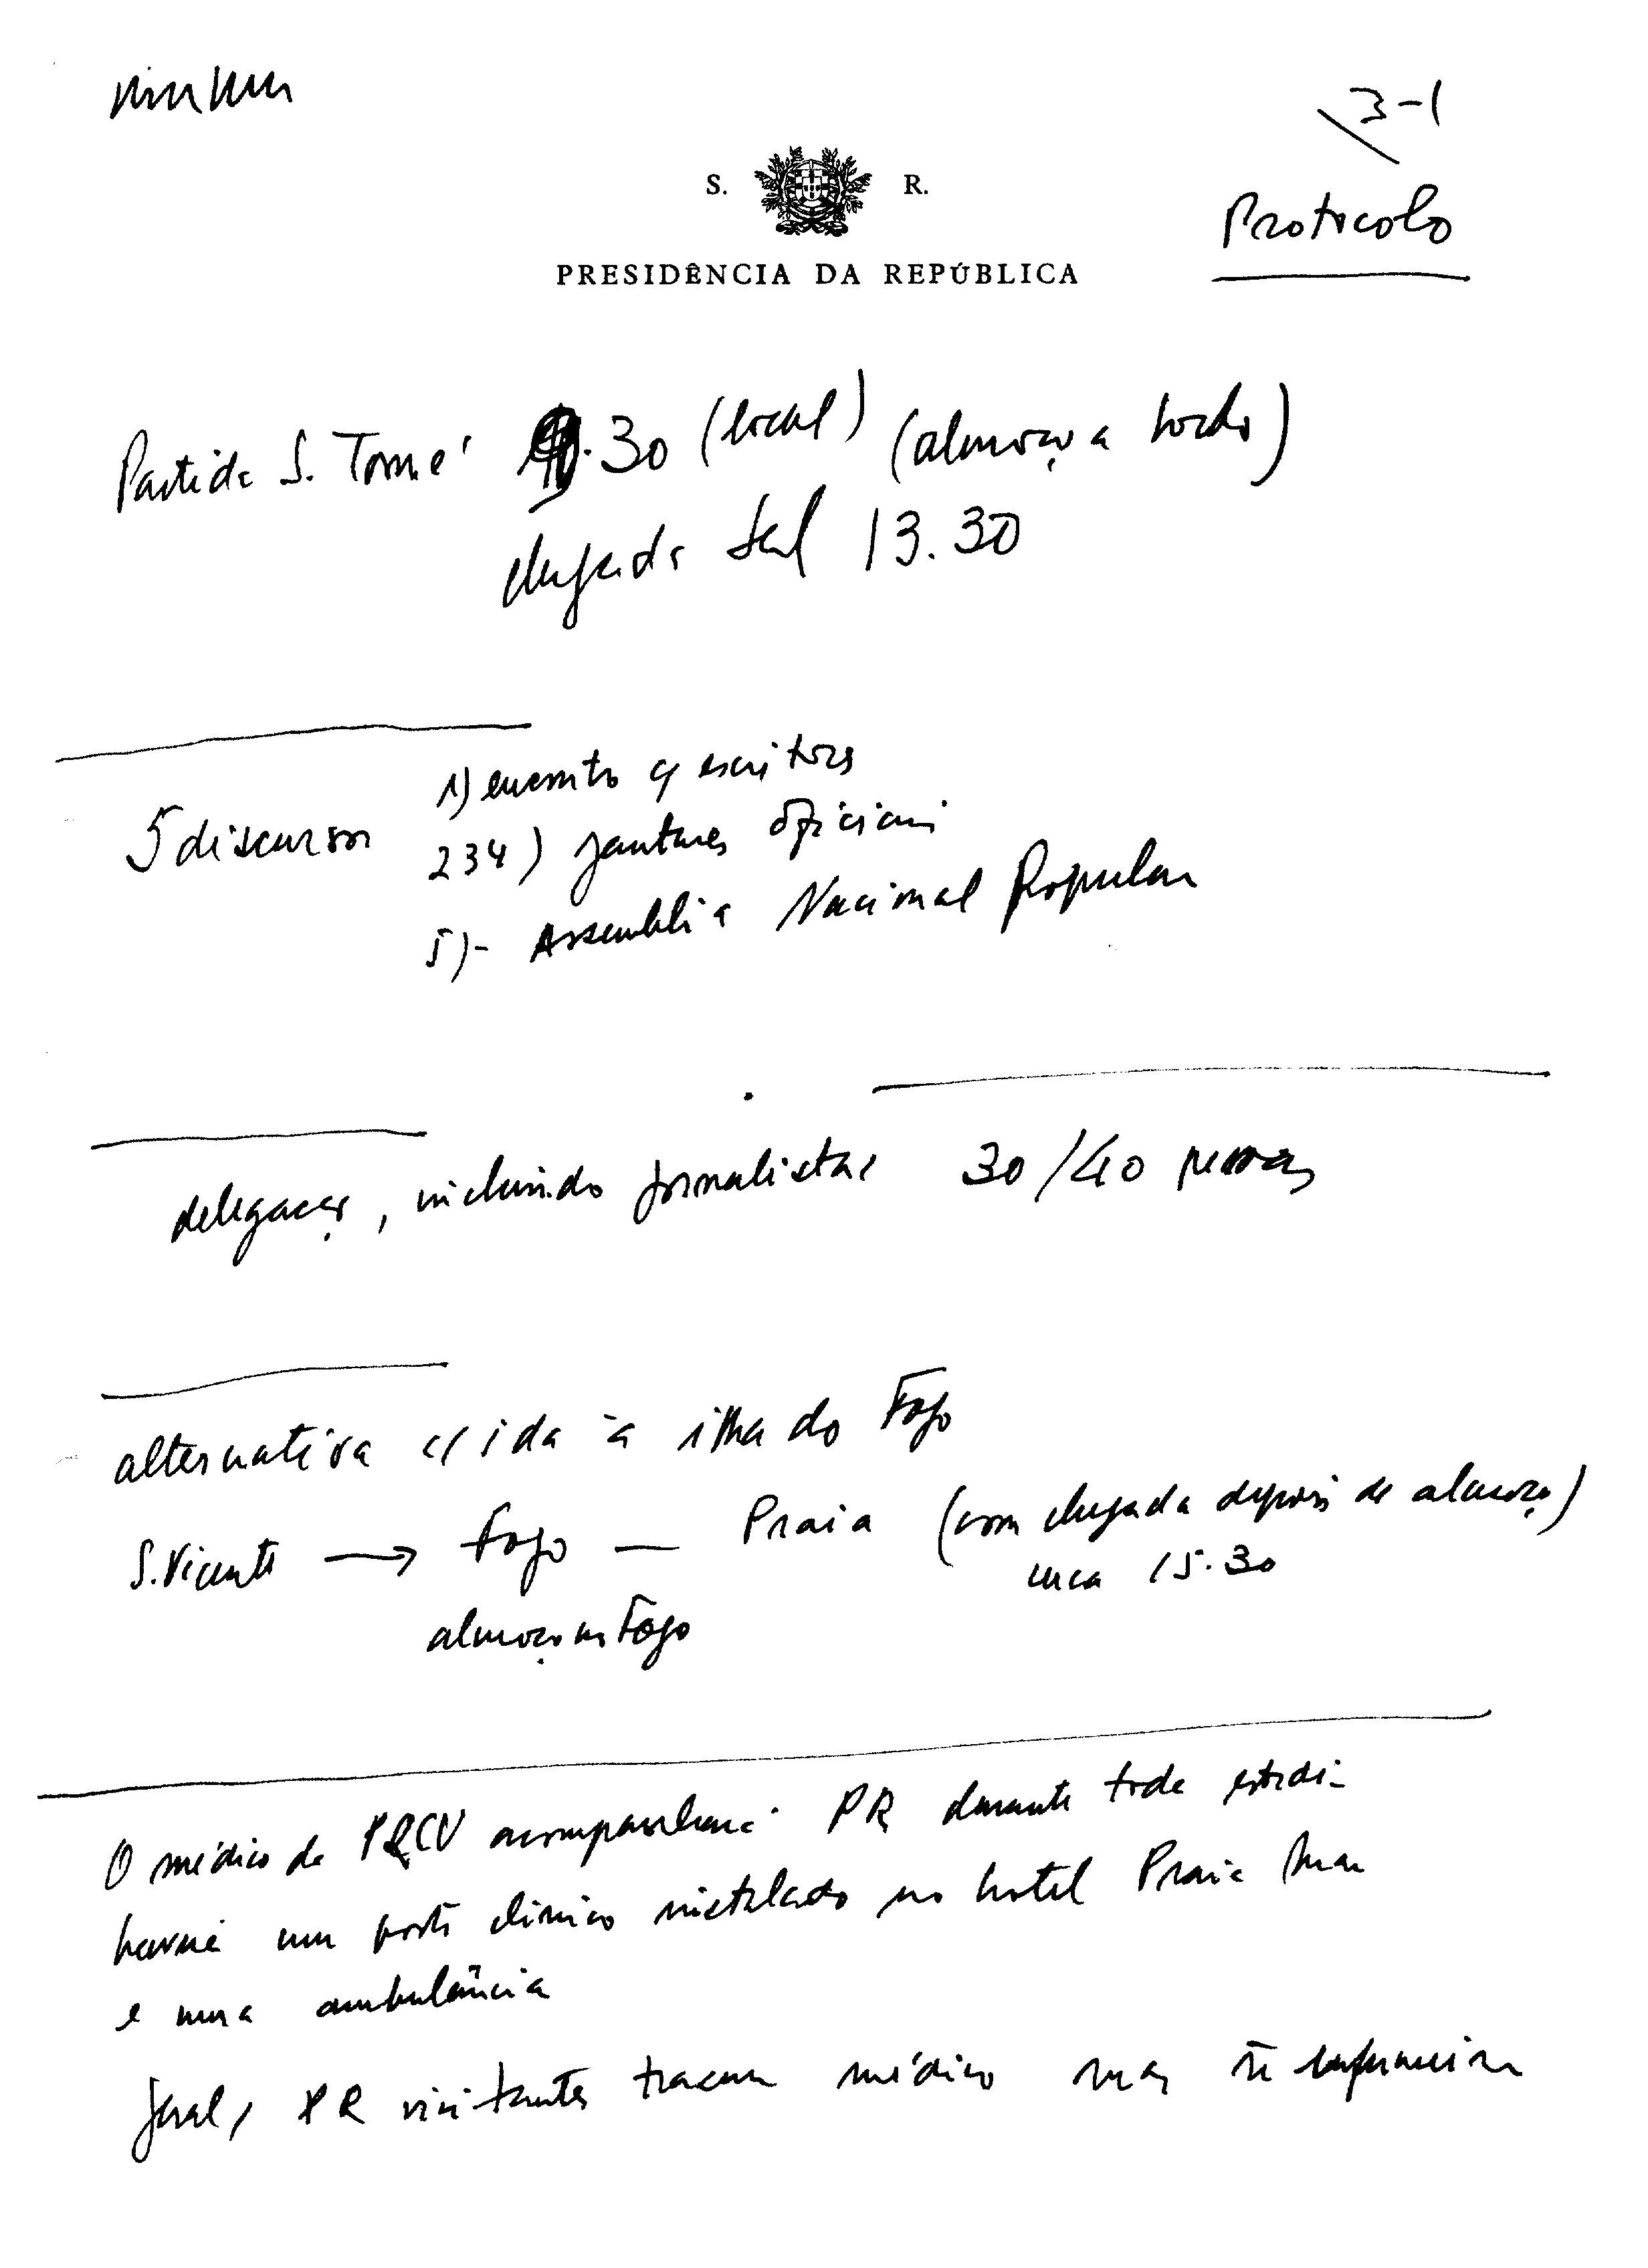 3-1
S. R.
Protocolo
PRESIDÊNCIA DA REPÚBLICA
Partida S. Tomé .30 (local) (almoço a bordo)
chegada Sal 13.30
5 discursos
1) encontro c/ escritores
2 3 4) jantares oficiais
5)- Assembleia Nacional Popular
delegação, incluindo jornalistas 30/40 pessoas
alternativa c/ ida à ilha do Fogo
S. Vicente → Fogo — Praia (com chegada depois de almoço)
cerca 15.30
almoço no Fogo
O médico da PRCV acompanhará PR durante toda estadia
haverá um posto clínico instalado no hotel Praia Mar
e uma ambulância
geral, PR visitantes trazem médico mas ñ enfermeira